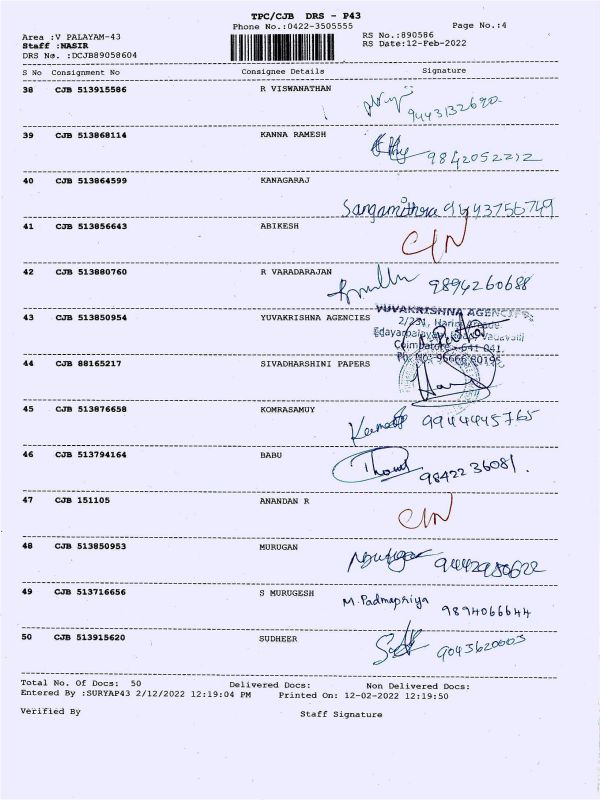 TPC/CJB DRS - P43
Phone No.:0422-3505555 Page No.:4
Area :V PALAYAM-43 RS No.:890586
Staff :NASIR RS Date:12-Feb-2022
DRS No. :DCJB89058604
S No Consignment No Consignee Details Signature
38 CJB 513915586 R VISWANATHAN
9443132690
39 CJB 513868114 KANNA RAMESH
9842052212
40 CJB 513864599 KANAGARAJ
Sangamithra 9443756749
41 CJB 513856643 ABIKESH
C/N
42 CJB 513880760 R VARADARAJAN
9894260688
43 CJB 513850954 YUVAKRISHNA AGENCIES
YUVAKRISHNA AGENCIES
2/231,
Coimbatore - 641 041.
44 CJB 88165217 SIVADHARSHINI PAPERS
45 CJB 513876658 KOMRASAMUY
9944445765
46 CJB 513794164 BABU
9842236081.
47 CJB 151105 ANANDAN R
C/N
48 CJB 513850953 MURUGAN
Murugan 9442980622
49 CJB 513716656 S MURUGESH
M.Padmapriya 9894066644
50 CJB 513915620 SUDHEER
9043620003
Total No. Of Docs: 50 Delivered Docs: Non Delivered Docs:
Entered By :SURYAP43 2/12/2022 12:19:04 PM Printed On: 12-02-2022 12:19:50
Verified By Staff Signature